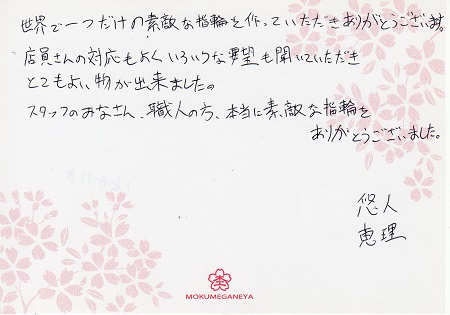 世界で一つだけの素敵な指輪を作っていただきありがとうございます。
店員さんの対応もよくいろいろな要望も聞いていただき
とてもよい物が出来ました。
スタッフのみなさん、職人の方、本当に素敵な指輪を
ありがとうございました。
悠人
恵理
MOKUMEGANEYA